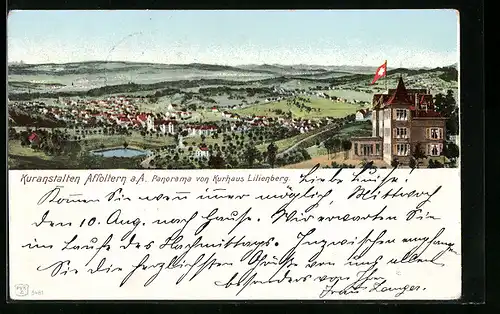 Kuranstalten Affoltern a./A. Panorama von Kurhaus Lilienberg.
Liebe Luise!
Kommen Sie wenn immer möglich, Mittwoch
den 10. Aug. nach Hause. Wir erwarten Sie
im Laufe des Nachmittags. Inzwischen empfangen
Sie die herzlichsten Grüße von uns allen
besonders von Ihrer
Frau
3481